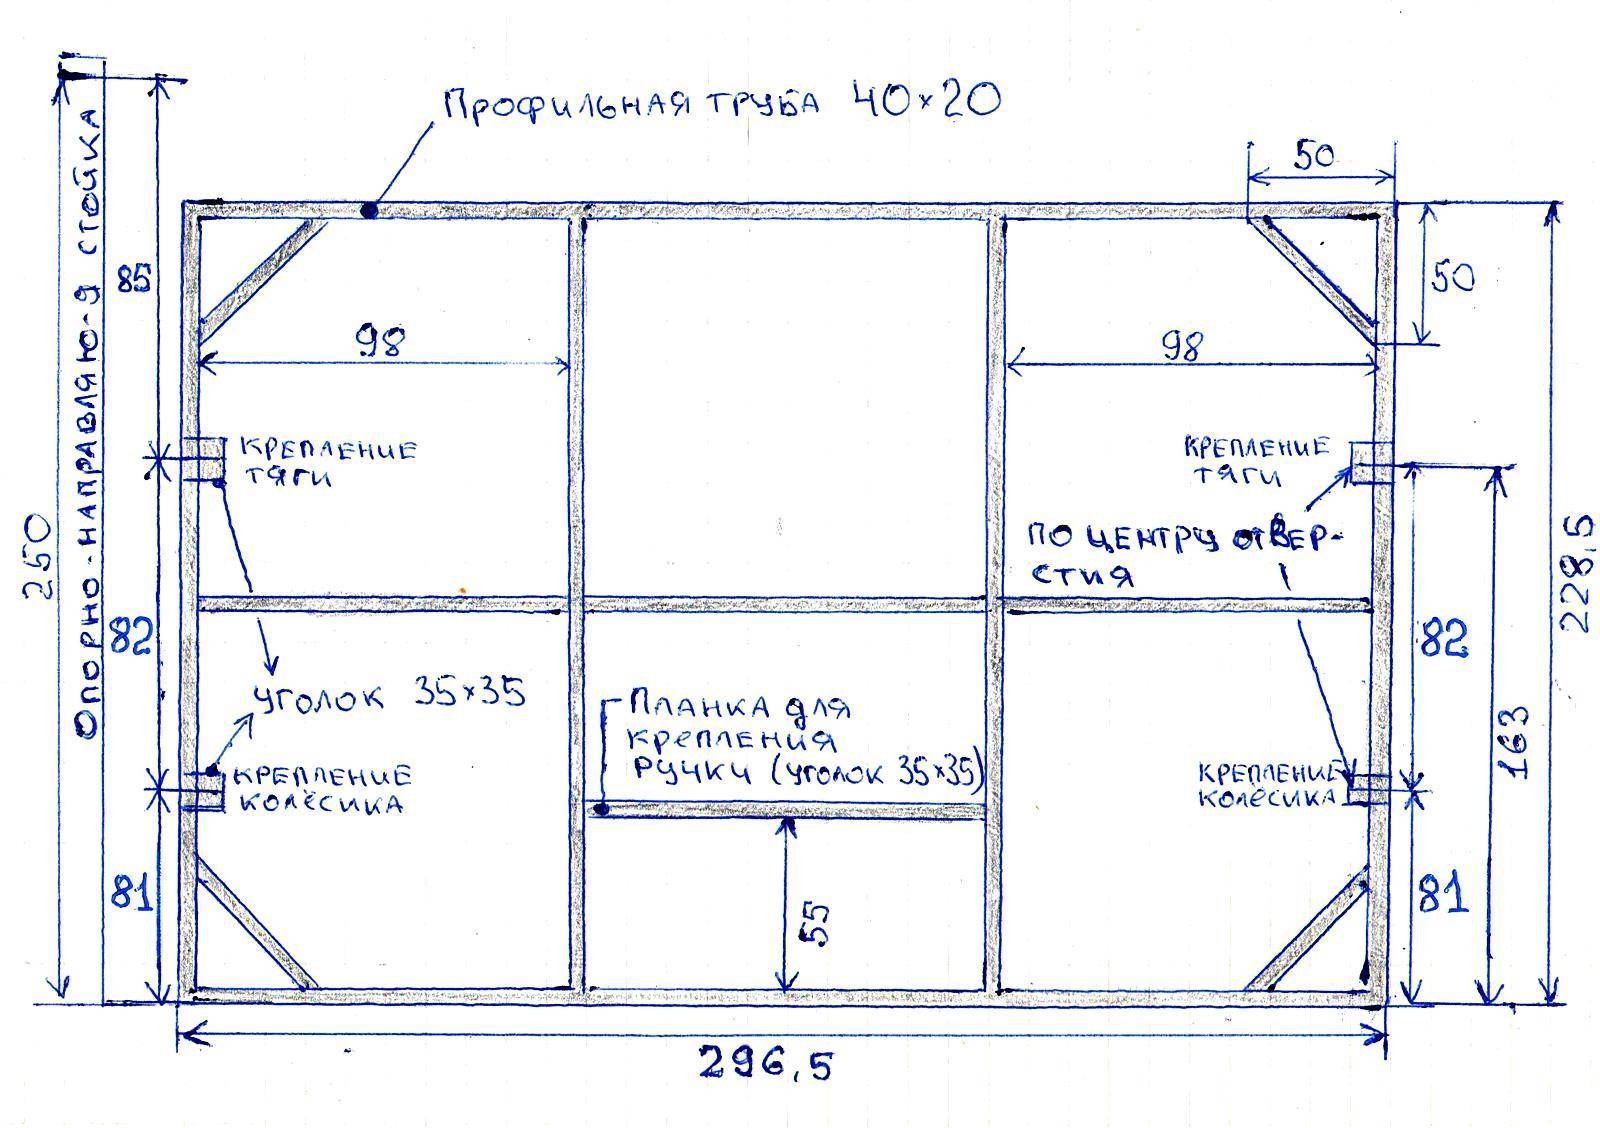 Профильная труба 40×20
50
50
Опорно-направляю-я стойка
85
98
98
Крепление
тяги
Крепление
тяги
по центру отвер-
стия
250
228,5
82
82
уголок 35×35
Планка для
крепления
ручки (уголок 35×35)
163
Крепление
колёсика
Крепление
колёсика
81
81
55
296,5